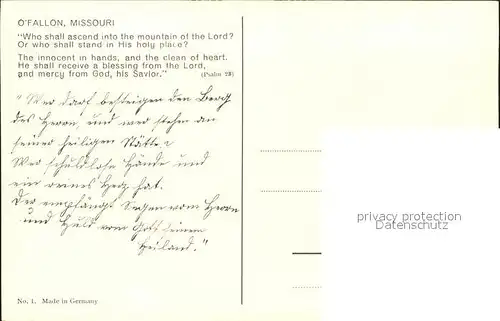 O'FALLON, MISSOURI
"Who shall ascend into the mountain of the Lord?
Or who shall stand in His holy place?
The innocent in hands, and the clean of heart.
He shall receive a blessing from the Lord,
and mercy from God, his Savior." (Psalm 23)
"Wer darf besteigen den Berg
des Herrn, und wer stehen an
seiner heiligen Stätte?
Wer schuldlose Hände und
ein reines Herz hat.
Der empfängt Segen vom Herrn
und Huld vom Gott seinem
Heiland."
privacy protection
Datenschutz
No. 1. Made in Germany